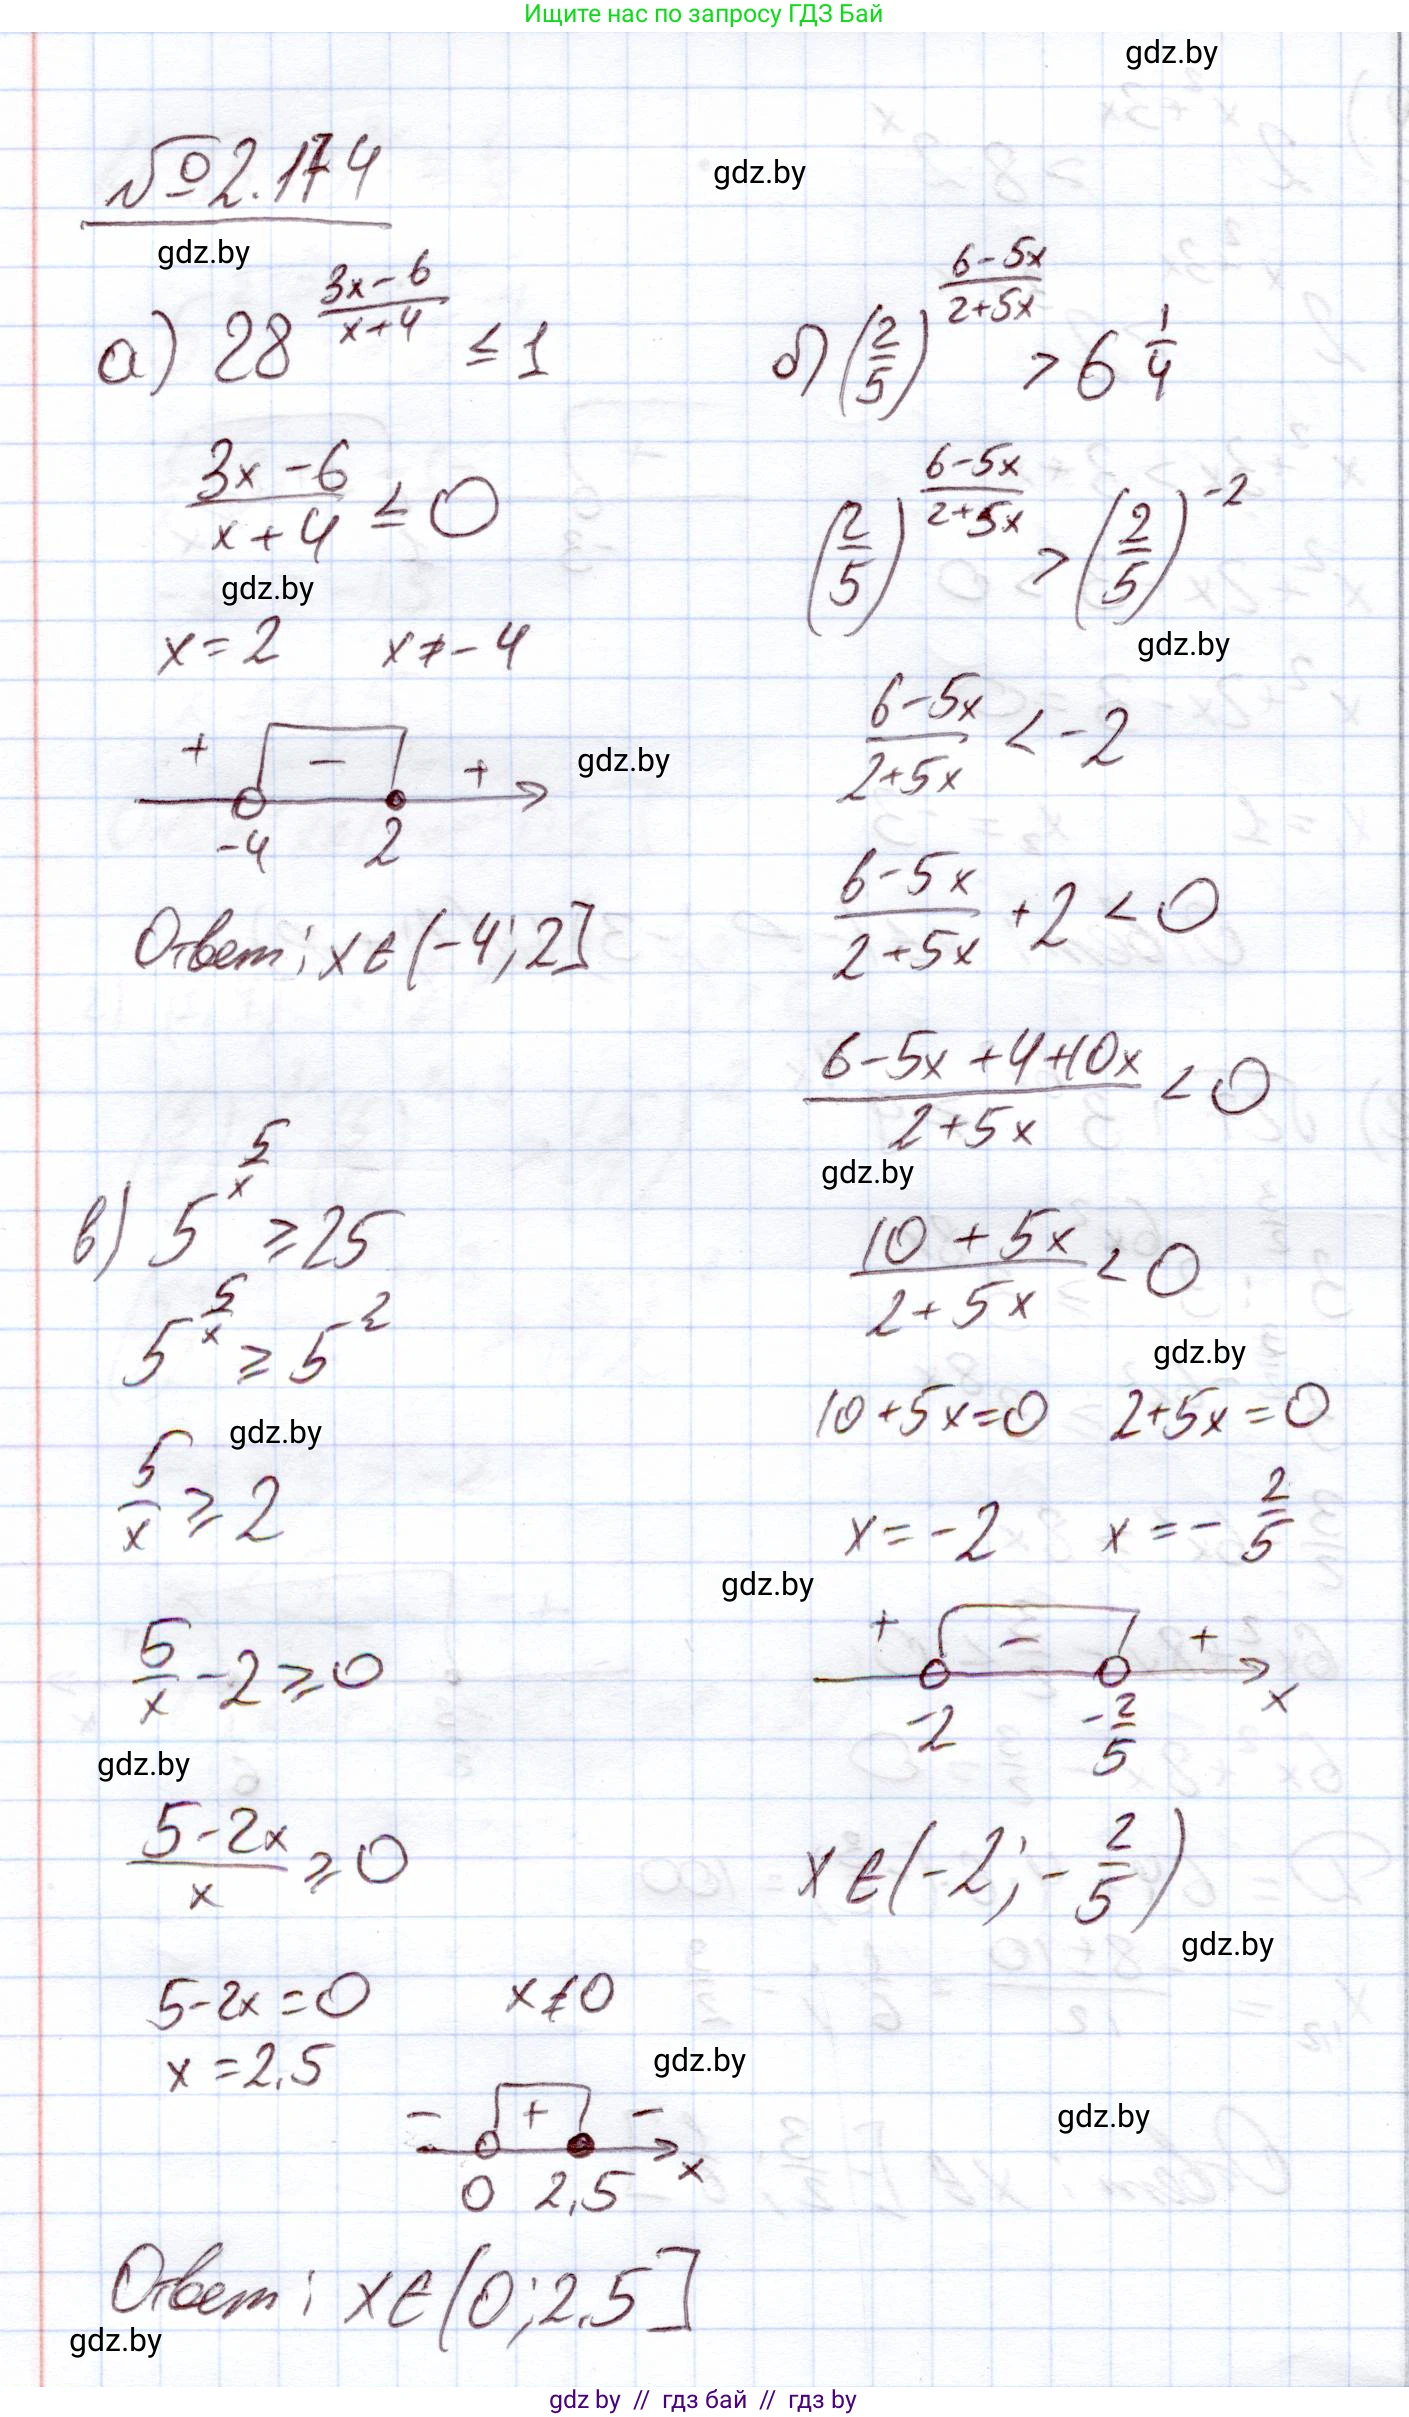 Ищите нас по запросу ГДЗ Бай
gdz.by
№2.174
gdz.by
gdz.by
а) 28^((3x-6)/(x+4)) ≤ 1
(3x-6)/(x+4) ≤ 0
gdz.by
x=2 x≠-4
+ - +
gdz.by
-4 2
Ответ: x∈(-4;2]
б) (2/5)^((6-5x)/(2+5x)) > 6 1/4
(2/5)^((6-5x)/(2+5x)) > (2/5)^(-2)
gdz.by
(6-5x)/(2+5x) < -2
(6-5x)/(2+5x) +2 < 0
(6-5x+4+10x)/(2+5x) < 0
gdz.by
(10+5x)/(2+5x) < 0
gdz.by
10+5x=0 2+5x=0
x=-2 x=-2/5
gdz.by
+ - +
-2 -2/5 x
x∈(-2;-2/5)
gdz.by
в) 5^(5/x) ≥ 25
5^(5/x) ≥ 5^2
gdz.by
5/x ≥ 2
5/x -2 ≥ 0
gdz.by
(5-2x)/x ≥ 0
5-2x=0 x≠0
x=2,5
gdz.by
gdz.by
- + -
0 2,5 x
Ответ: x∈(0;2,5]
gdz.by
gdz by // гдз бай // гдз by